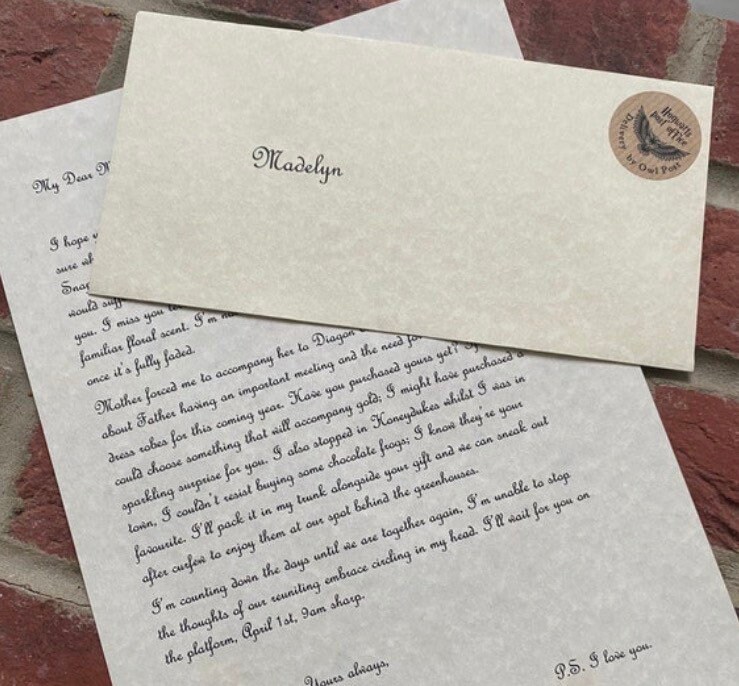 Madelyn
Hogwarts
post office
Delivery by Owl Post
My Dear
I hope
sure
would
you. I miss you
familiar floral scent. I'm
once it's fully faded.
Mother forced me to accompany her to Diagon
about Father having an important meeting and the need for
dress robes for this coming year. Have you purchased yours yet?
could choose something that will accompany gold; I might have purchased a
sparkling surprise for you. I also stopped in Honeydukes whilst I was in
town, I couldn't resist buying some chocolate frogs; I know they're your
favourite. I'll pack it in my trunk alongside your gift and we can sneak out
after curfew to enjoy them at our spot behind the greenhouses.
I'm counting down the days until we are together again, I'm unable to stop
the thoughts of our reuniting embrace circling in my head. I'll wait for you on
the platform, April 1st, 9am sharp.
Yours always,
P.S. I love you.